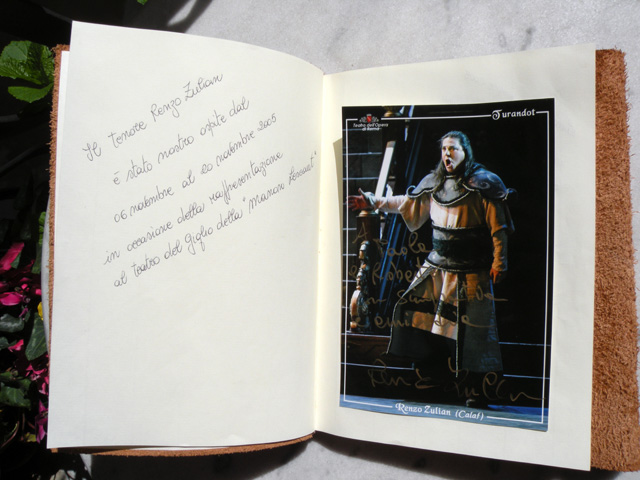 Il Tenore Renzo Zulian
è stato nostro ospite dal
06 novembre al 20 novembre 2005
in occasione della rappresentazione
al Teatro del Giglio della "Manon Lescaut"
Teatro dell'Opera
di Roma
Turandot
A Paola
e Roberto
con
Renzo Zulian (Calaf)